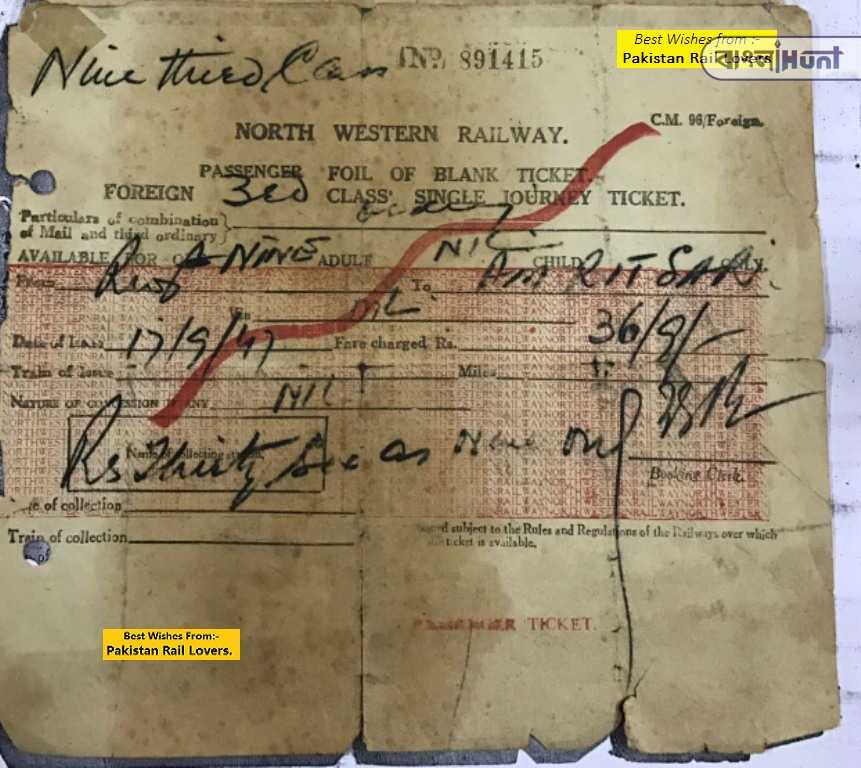 Best Wishes from :-
Pakistan Rail Lovers
বাংলা Hunt
Nine third Class
No. 891415
C.M. 96/Foreign.
NORTH WESTERN RAILWAY.
PASSENGER FOIL OF BLANK TICKET.
FOREIGN 3rd CLASS SINGLE JOURNEY TICKET.
Particulars of combination
of Mail and third ordinary
AVAILABLE FOR NINE ADULT NIL CHILD ONLY.
From To AMRITSAR.
Via NIL
Date of Issue 17/9/47 Fare charged Rs. 36/9/-
Train of Issue Miles
NATURE OF CONCESSION IF ANY NIL
Rs Thirty Six as Nine only
Name of collecting station.
Booking Clerk.
of collection
Train of collection
subject to the Rules and Regulations of the Railways over which
ticket is available.
PASSENGER TICKET.
Best Wishes From:-
Pakistan Rail Lovers.